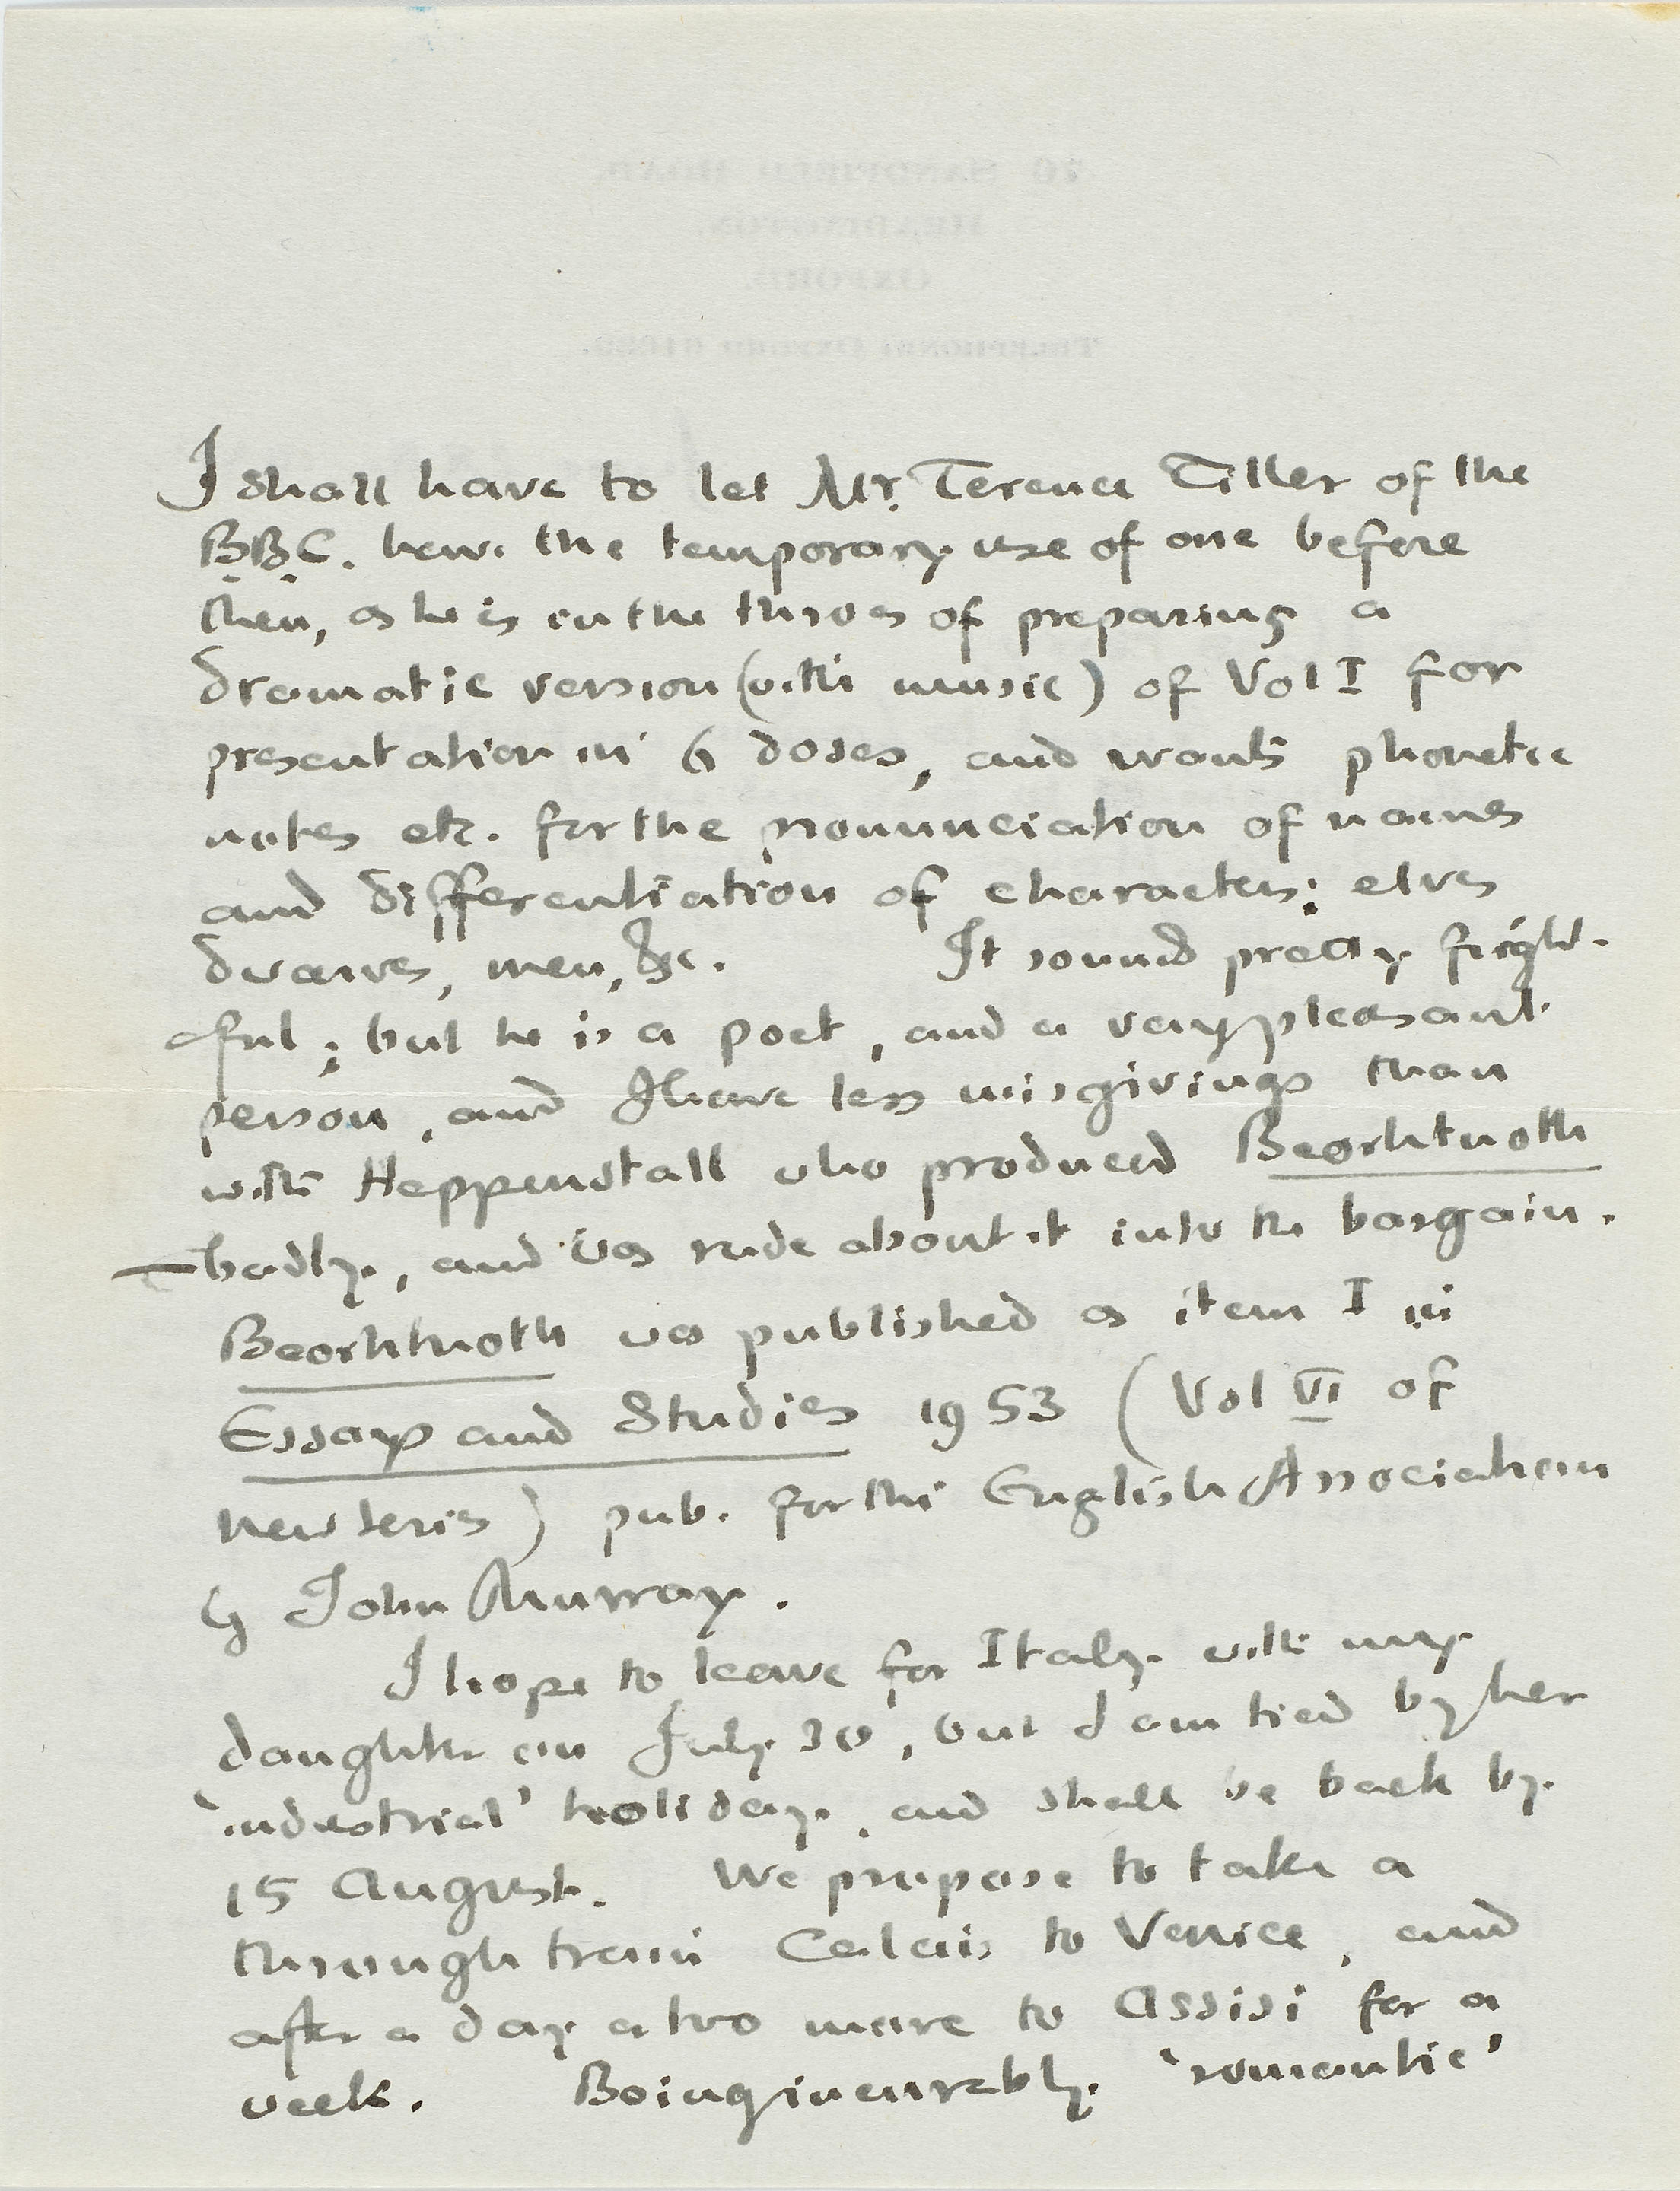 I shall have to let Mr. Terence Tiller of the
B.B.C. have the temporary use of one before
then, as he is in the throes of preparing a
dramatic version (with music) of Vol I for
presentation in 6 doses, and wants phonetic
notes etc. for the pronunciation of names
and differentiation of characters: elves
dwarves, men, &c. It sounds pretty fright-
ful; but he is a poet, and a very pleasant
person, and I have less misgivings than
with Heppenstall who produced Beorhtnoth
badly, and was rude about it into the bargain.
Beorhtnoth was published as item I in
Essays and Studies 1953 (Vol VI of
new series) pub. for the English Association
by John Murray.
I hope to leave for Italy with my
daughter on July 30, but I am tied by her
'industrial' holiday, and shall be back by
15 August. We propose to take a
through train Calais to Venice, and
after a day or two more to Assisi for a
week. Being incurably 'romantic'